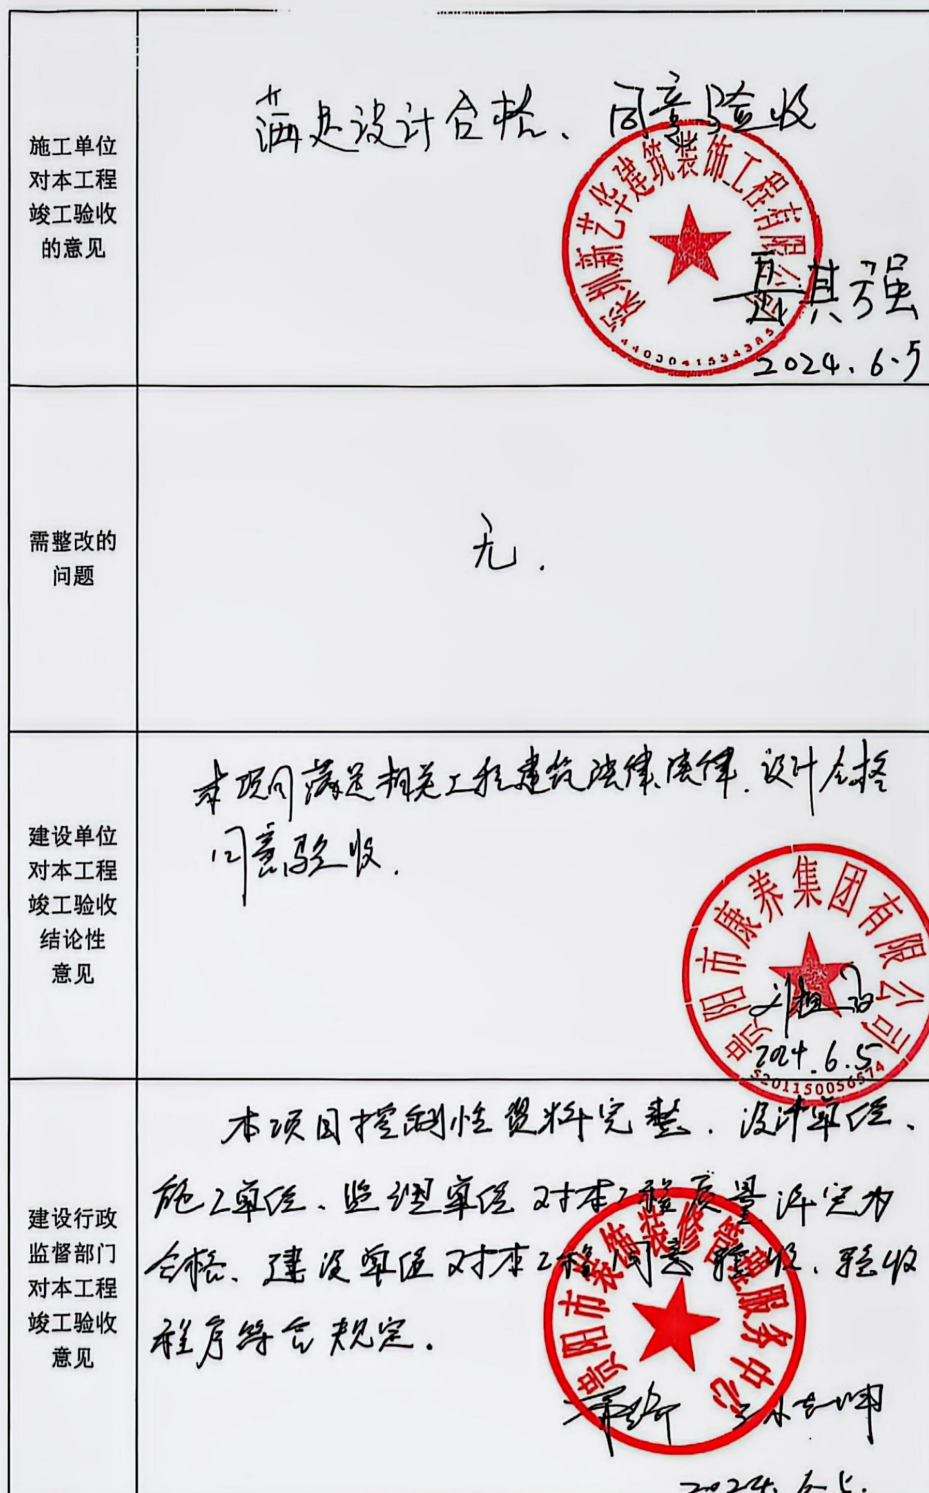 施工单位
对本工程
竣工验收
的意见
满足设计合格、同意验收
深圳新艺华建筑装饰工程有限公司
4403041534385
其强
2024.6.5
需整改的
问题
无.
建设单位
对本工程
竣工验收
结论性
意见
本项目满足相关工程建筑法律法律.设计合格
同意验收.
贵阳市康养集团有限公司
5201150056574
2024.6.5
建设行政
监督部门
对本工程
竣工验收
意见
本项目控制性资料完整.设计单位、
施工单位、监理单位对本工程质量评定为
合格、建设单位对本工程同意验收、验收
程序符合规定.
贵阳市装饰装修管理服务中心
2024.6.5.